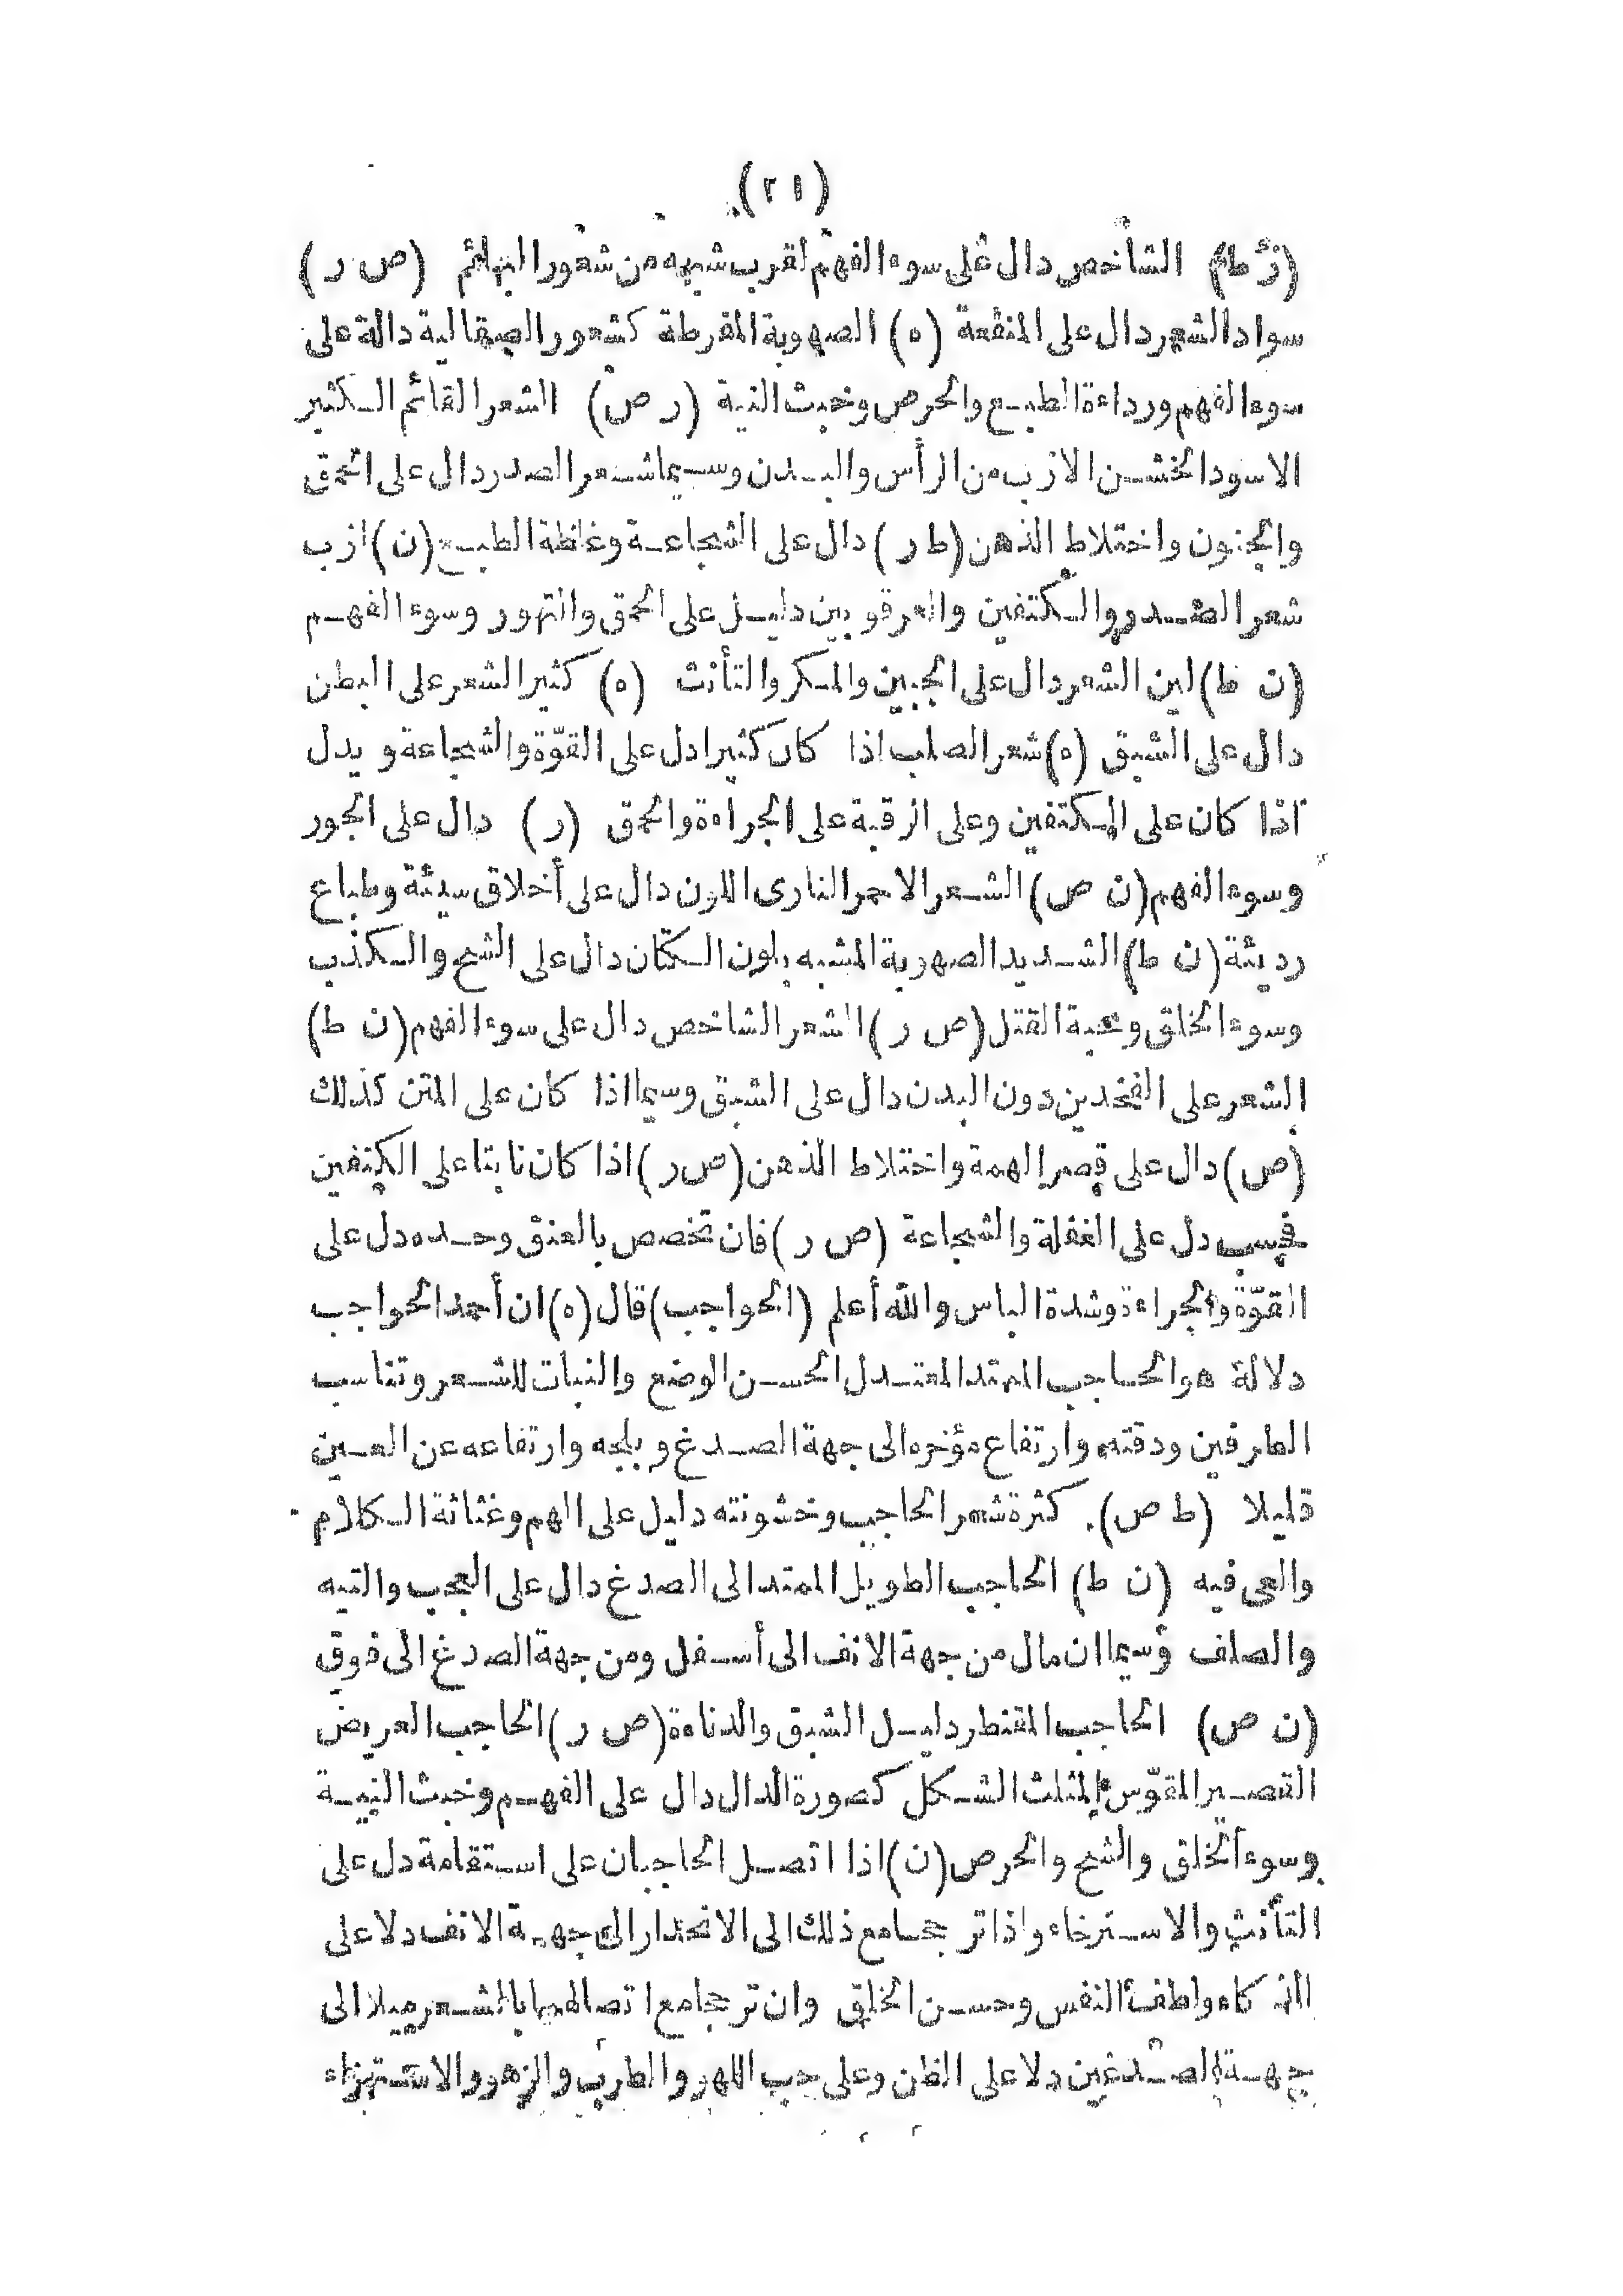 (٢١)
(ر ط) الشاخص دال على سوء الفهم لقرب شبهه من شعور البهائم (ص ر)
سواد الشعر دال على المنقعة (ه) الصهوبة المفرطة كشعور الصقالبة دالة على
سوء الفهم ورداءة الطبع والحرص وخبث النية (ر ص) الشعر القائم الكثير
الاسود الخشن الازب من الرأس والبدن وسيما شعر الصدر دال على الحمق
والجنون واختلاط الذهن (ط ر) دال على الشجاعة وغلظة الطبع (ن) ازب
شعر الصدر والكتفين والعرقوبين دليل على الحمق والتهور وسوء الفهم
(ن ط) لين الشعر دال على الجبين والمكر والتأنث (ه) كثير الشعر على البطن
دال على الشبق (ه) شعر الصلب اذا كان كثيرا دل على القوّة والشجاعة ويدل
اذا كان على الكتفين وعلى الرقبة على الجراءة والحمق (ر) دال على الجور
وسوء الفهم (ن ص) الشعر الاحمر النارى اللون دال على أخلاق سيئة وطباع
رديئة (ن ط) الشديد الصهوبة المشبه بلون الكتان دال على الشح والكذب
وسوء الخلق ومحبة القتل (ص ر) الشعر الشاخص دال على سوء الفهم (ن ط)
الشعر على الفخذين دون البدن دال على الشبق وسيما اذا كان على المتن كذلك
(ص) دال على قصر الهمة واختلاط الذهن (ص ر) اذا كان نابتا على الكتفين
فحسب دل على الغفلة والشجاعة (ص ر) فان تخصص بالعنق وحده دل على
القوّة والجراءة وشدة الباس والله أعلم (الحواجب) قال (ه) ان أحمد الحواجب
دلالة هو الحاجب الممتد المعتدل الحسن الوضع والنبات للشعر وتناسب
الطرفين ودقته وارتفاع مؤخره الى جهة الصدغ وبلجه وارتفاعه عن العين
قليلا (ط ص) كثرة شعر الحاجب وخشونته دليل على الهم وغثاثة الكلام
والعى فيه (ن ط) الحاجب الطويل الممتد الى الصدغ دال على العجب والتيه
والصلف وسيما ان مال من جهة الانف الى أسفل ومن جهة الصدغ الى فوق
(ن ص) الحاجب المقنطر دليل الشبق والدناءة (ص ر) الحاجب العريض
القصير المقوّس المثلث الشكل كصورة الدال دال على الفهم وخبث النية
وسوء الخلق والشح والحرص (ن) اذا اتصل الحاجبان على استقامة دل على
التأنث والاسترخاء واذا ترججا مع ذلك الى الانحدار الى جهة الانف دلا على
الذكاء ولطف النفس وحسن الخلق وان ترججا مع اتصالهما بالشعر ميلا الى
جهة الصدغين دلا على الظن وعلى حب اللهو والطرب والزهو والاستهزاء